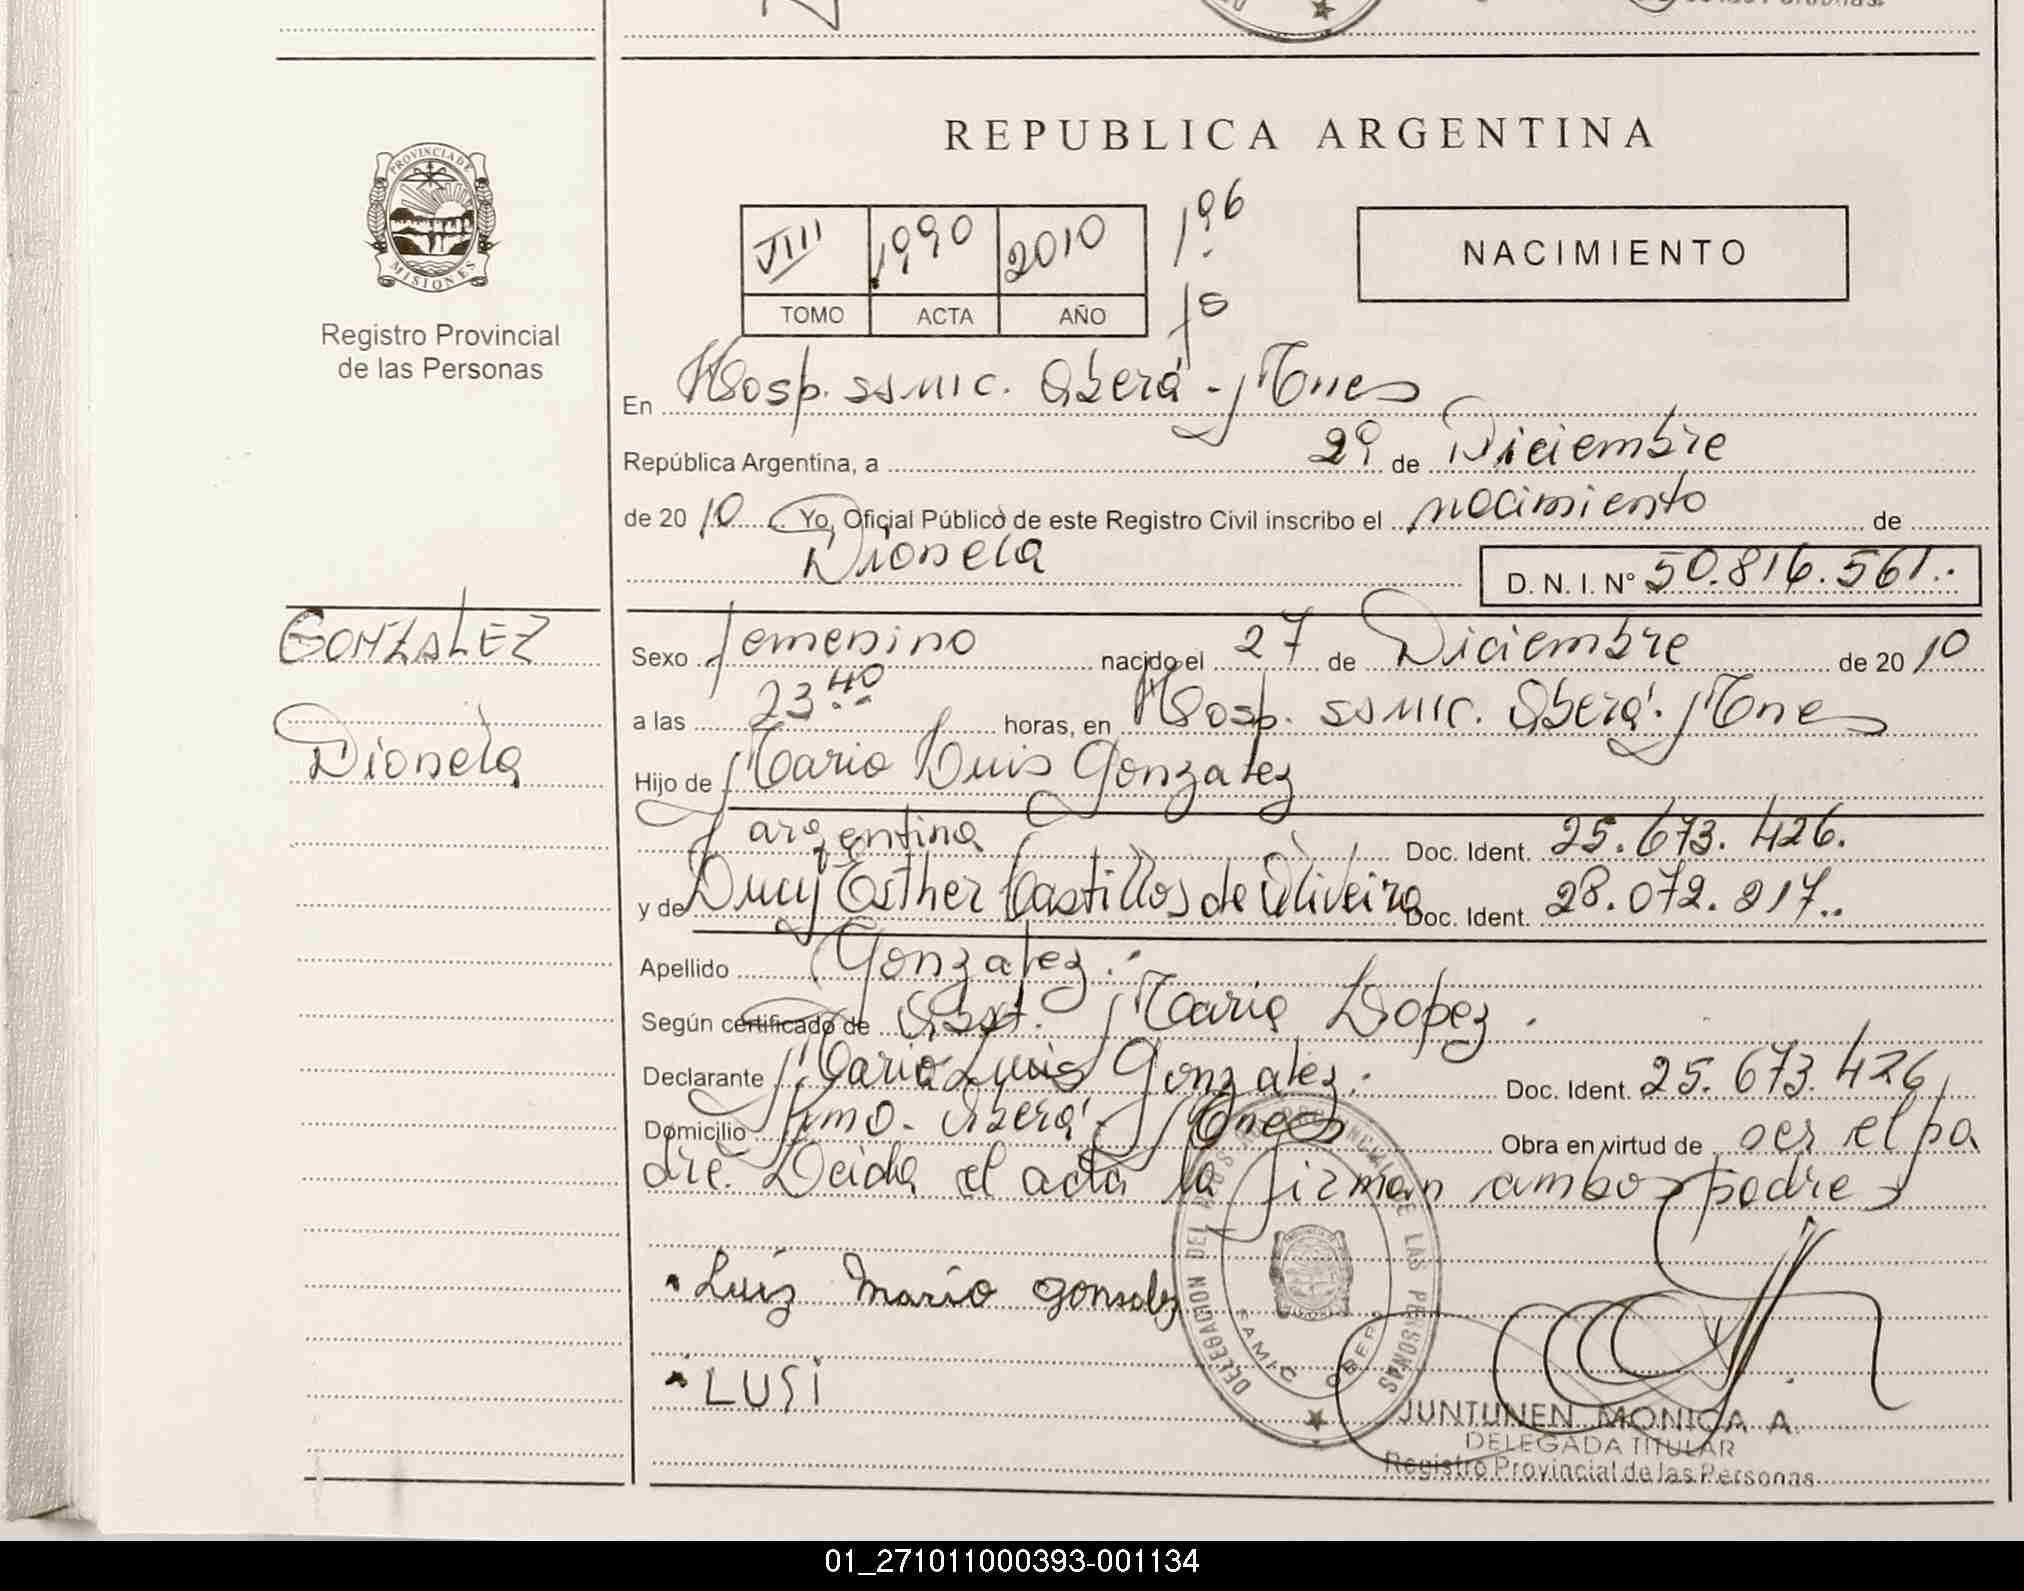 REPUBLICA ARGENTINA
PROVINCIA DE
MISIONES
Registro Provincial
de las Personas
VIII 1990 2010 196
TOMO ACTA AÑO fº
NACIMIENTO
En Hosp. SSMIC. Oberá - Mnes
República Argentina, a 29 de Diciembre
de 2010 Yo, Oficial Público de este Registro Civil inscribo el nacimiento de
Dionela
D. N. I. Nº 50.816.561..
GONZALEZ
Dionela
Sexo femenino nacido el 27 de Diciembre de 2010
a las 23 40 horas, en Hosp. SSMIC. Oberá - Mnes
Hijo de Mario Luis Gonzalez
argentina Doc. Ident. 25.673.426.
y de Lucy Esther Castillos de Oliveira Doc. Ident. 28.072.217..
Apellido Gonzalez.
Según certificado de Obst. Maria Lopez.
Declarante Mario Luis Gonzalez. Doc. Ident. 25.673.426
Domicilio Oberá - Mnes Obra en virtud de ser el pa
dre. Leida el acta la firman ambos padres
Luiz Mario gonsalez
LUSI
DELEGACION DEL REGISTRO PROVINCIAL DE LAS PERSONAS
SAMIC OBERA
JUNTUNEN MONICA A.
DELEGADA TITULAR
Registro Provincial de las Personas
01_271011000393-001134